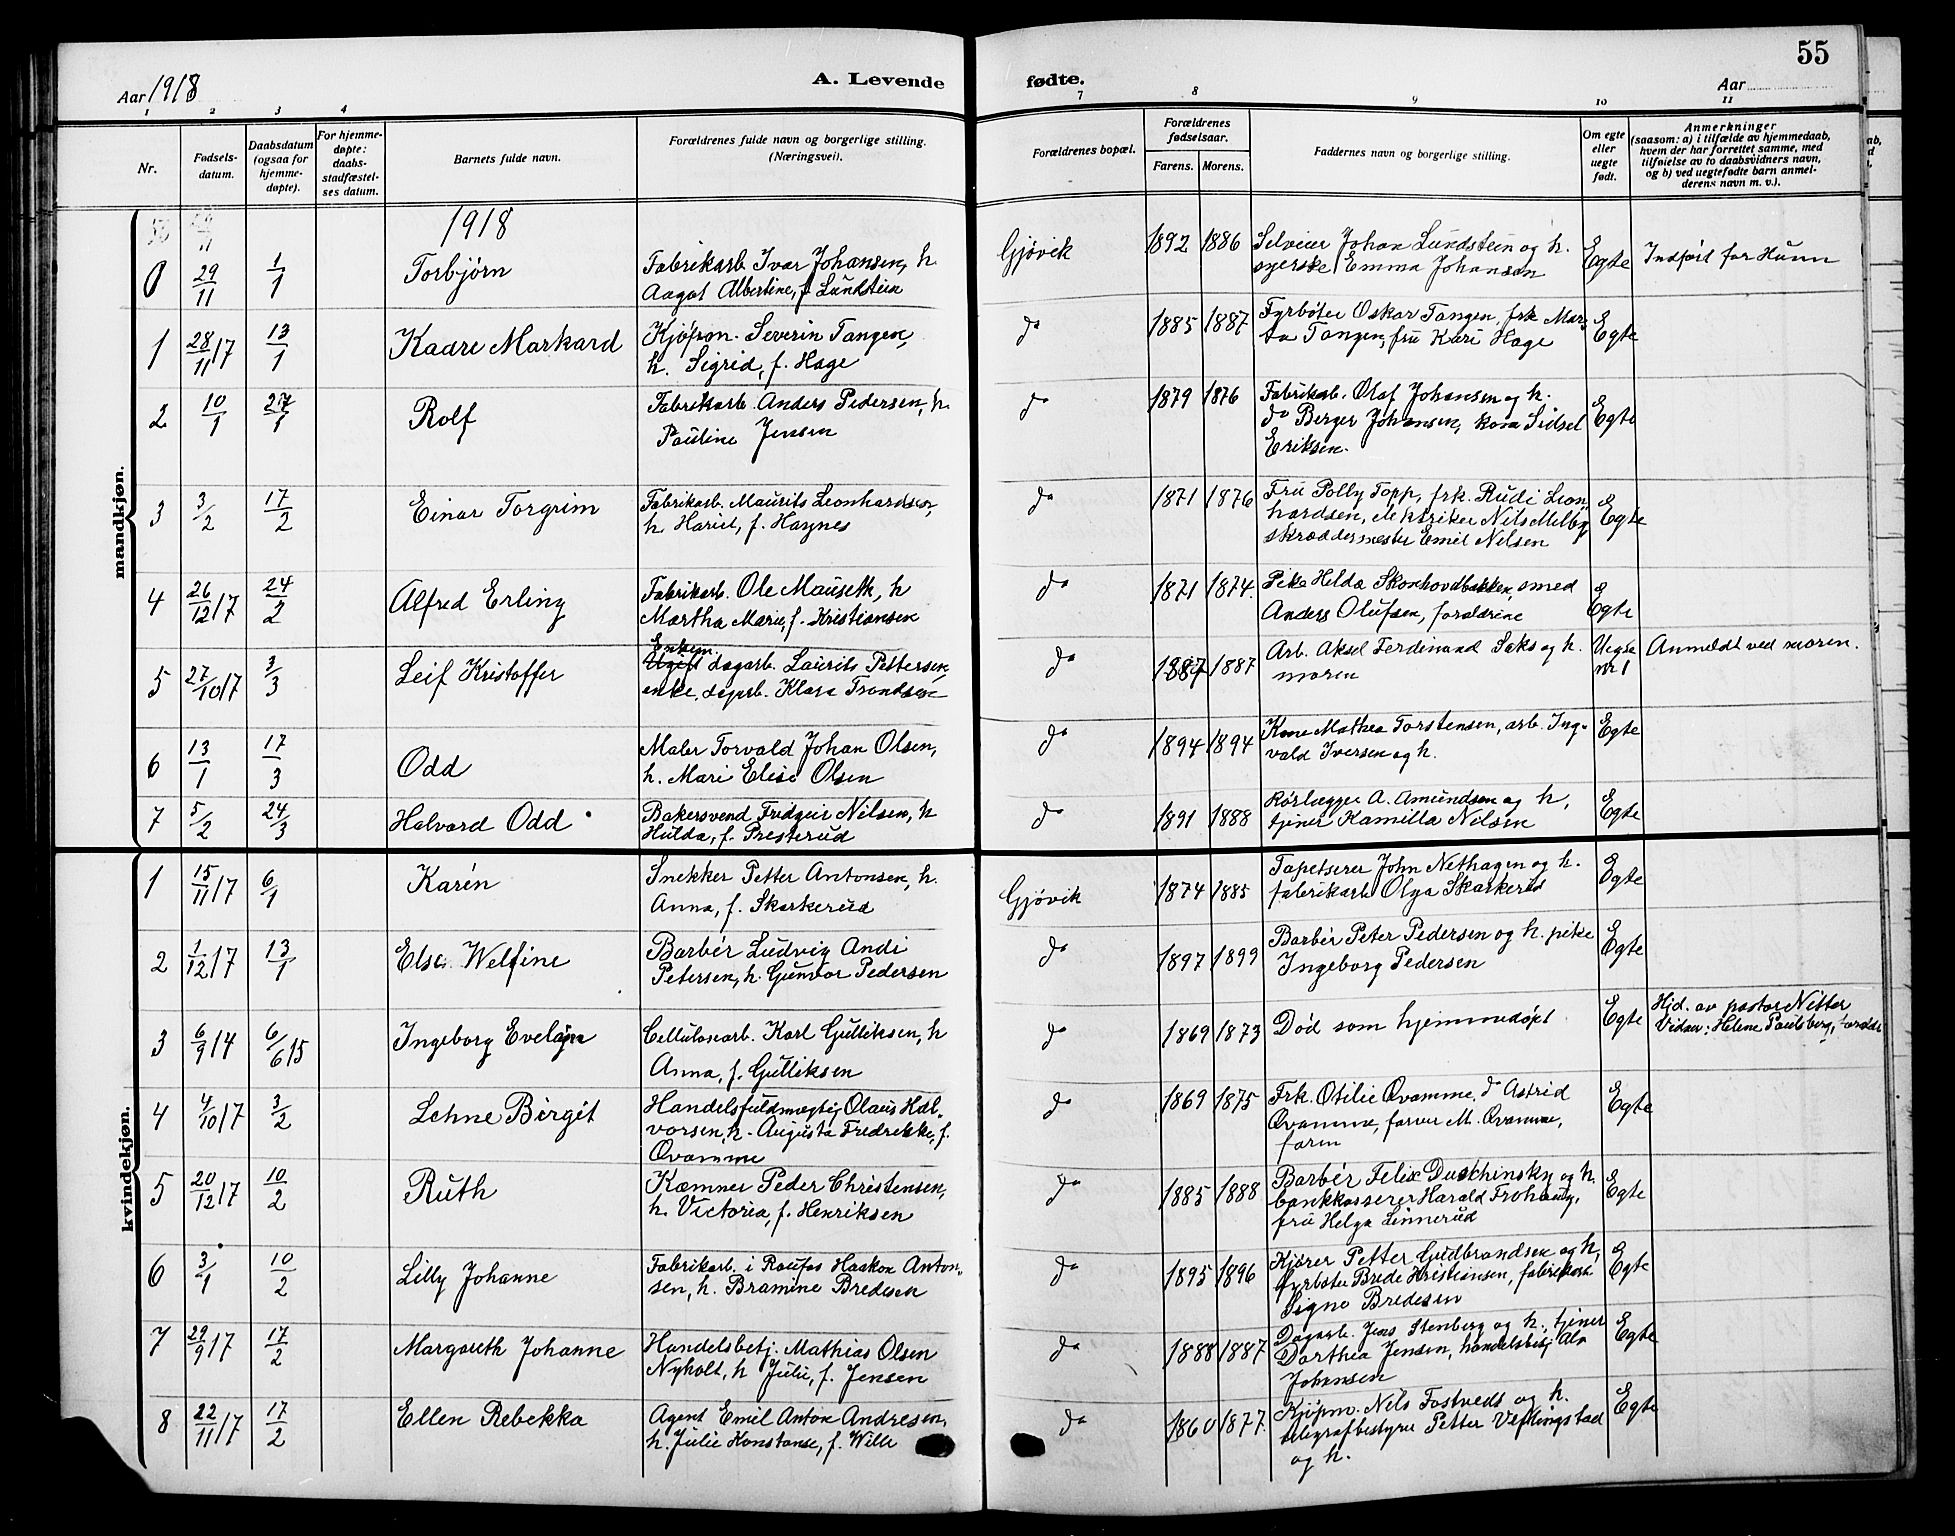 55
Aar 1918
A. Levende
fødte.
Aar
1 2 3 4 7 8 9 10 11
Nr.
Fødsels-
datum.
Daabsdatum
(ogsaa for
hjemme-
døpte).
For hjemme-
døpte:
daabs-
stadfæstel-
ses datum.
Barnets fulde navn.
Forældrenes fulde navn og borgerlige stilling.
(Næringsvei).
Forældrenes bopæl.
Forældrenes
fødselsaar.
Farens. Morens.
Faddernes navn og borgerlige stilling.
Om egte
eller
uegte
født.
Anmerkninger
(saasom: a) i tilfælde av hjemmedaab,
hvem der har forrettet samme, med
tilføielse av to daabsvidners navn,
og b) ved uegtefødte barn anmel-
derens navn m. v.).
mandkjøn.
1918
0 29/11 1/1 Torbjørn
Fabrikarb. Ivar Johansen, h.
Aagot Albertine, f. Lundstein
Gjøvik 1892 1886
Selveier Johan Lundstein og h.
syerske Emma Johansen
Egte
Indført for Hunn
1 28/11 17 13/1 Kaare Markard
Kjøpm. Severin Tangen,
h. Sigrid, f. Hage
do 1885 1887
Fyrbøter Oskar Tangen, frk Mar-
ta Tangen, fru Kari Hage
Egte
2 10/1 27/1 Rolf
Fabrikarb. Anders Pedersen, h.
Pauline Jensen
do 1879 1876
Fabrikarb. Olaf Johansen og h.
do Berger Johansen, kona Sidsel
Eriksen.
Egte
3 3/2 17/2 Einar Torgrim
Fabrikarb. Maurits Leonhardsen,
h. Hariet, f. Haynes
do 1871 1876
Fru Polly Topp, frk. Rudi Leon-
hardsen, elektriker Nils Melby,
skræddermester Emil Nilsen
Egte
4 26/12 17 24/2 Alfred Erling
Fabrikarb. Ole Mauseth, h
Martha Marie, f. Kristiansen
do 1871 1874.
Pike Helda Skonhovdbakken, smed
Anders Olufsen, forældrene
Egte
5 27/10 17 3/3 Leif Kristoffer
Enkem.
Ugift dagarb. Laurits Pettersen,
enke, dagarb. Klara Trondsen
do 1887 1887
Arb. Aksel Ferdinand Saks og h.
moren
Uegte
nr 1
Anmeldt ved moren.
6 13/1 17/3 Odd
Maler Torvald Johan Olsen,
h. Mari Elise Olsen
do 1894 1894
Kone Mathea Torstensen, arb. Ing-
vald Iversen og h.
Egte
7 5/2 24/3 Halvard Odd
Bakersvend Fridgeir Nilsen, h
Hulda, f. Presterud
do 1891 1888
Rørlægger A. Amundsen og h,
tjener Kamilla Nilsen
Egte
kvindekjøn.
1 15/11 17 6/1 Karen
Snekker Petter Antonsen, h.
Anna, f. Skarkerud
Gjøvik 1874 1885
Tapetserer John Nethagen og h.
fabrikarb Olga Skarkerud
Egte
2 1/12 17 13/1 Else Welfine
Barbér Ludvig Andi
Petersen, h. Gunvor Pedersen
do 1897 1899
Barbér Peter Pedersen og h. pike
Ingeborg Pedersen
Egte
3 6/9 14 6/6 15 Ingeborg
Cellulosearb. Karl Gulliksen, h
Anna, f. Gulliksen
do 1869 1873
Død som hjemmedøpt
Egte
Hjd. av pastor Nitter
Vidner: Helene Paulsberg, forældr.
4 4/10 17 3/2 Lehne Birgit
Handelsfuldmegtig Olaus Hal-
vorsen, h. Augusta Fredrikke, f.
Qvamme
do 1869 1875
Frk. Otilie Qvamme, do Astrid
Qvamme, farver M. Qvamme,
faren
Egte
5 20/12 17 10/2 Ruth
Kæmner Peder Christensen,
h. Victoria, f. Henriksen
do 1885 1888
Barbér Felix Duschinsky og h,
bankkasserer Harald Frohaug,
fru Helga Linnerud
Egte
6 3/1 10/2 Lilly Johanne
Fabrikarb. i Raufos Haakon Anton-
sen, h. Bramine Bredesen
do 1895 1896
Kjører Petter Gudbrandsen og h,
fyrbøter Brede Kristiansen, fabrikarb
Signe Bredesen
Egte
7 29/9 17 17/2 Margareth Johanne
Handelsbetj. Mathias Olsen
Nyholt, h Julie, f. Jensen
do 1888 1887
Dagarb. Jens Stenberg og h., tjener
Dorthea Jensen, handelsbetj
Johansen
Egte
8 22/11 17 17/2 Ellen Rebekka
Agent Emil Anton Andresen,
h. Julie Konstanse, f. Wille
do 1860 1877.
Kjøpm. Nils Fostveds og h.
telegrafbestyrer Petter Veflingstad
og h.
Egte